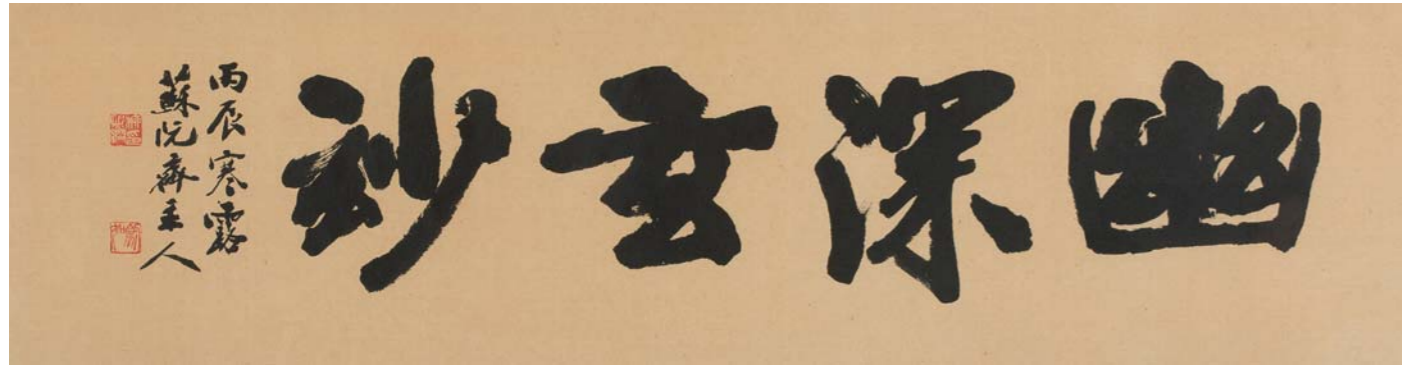 幽深玄玅
丙辰寒露
蘇阮齋主人